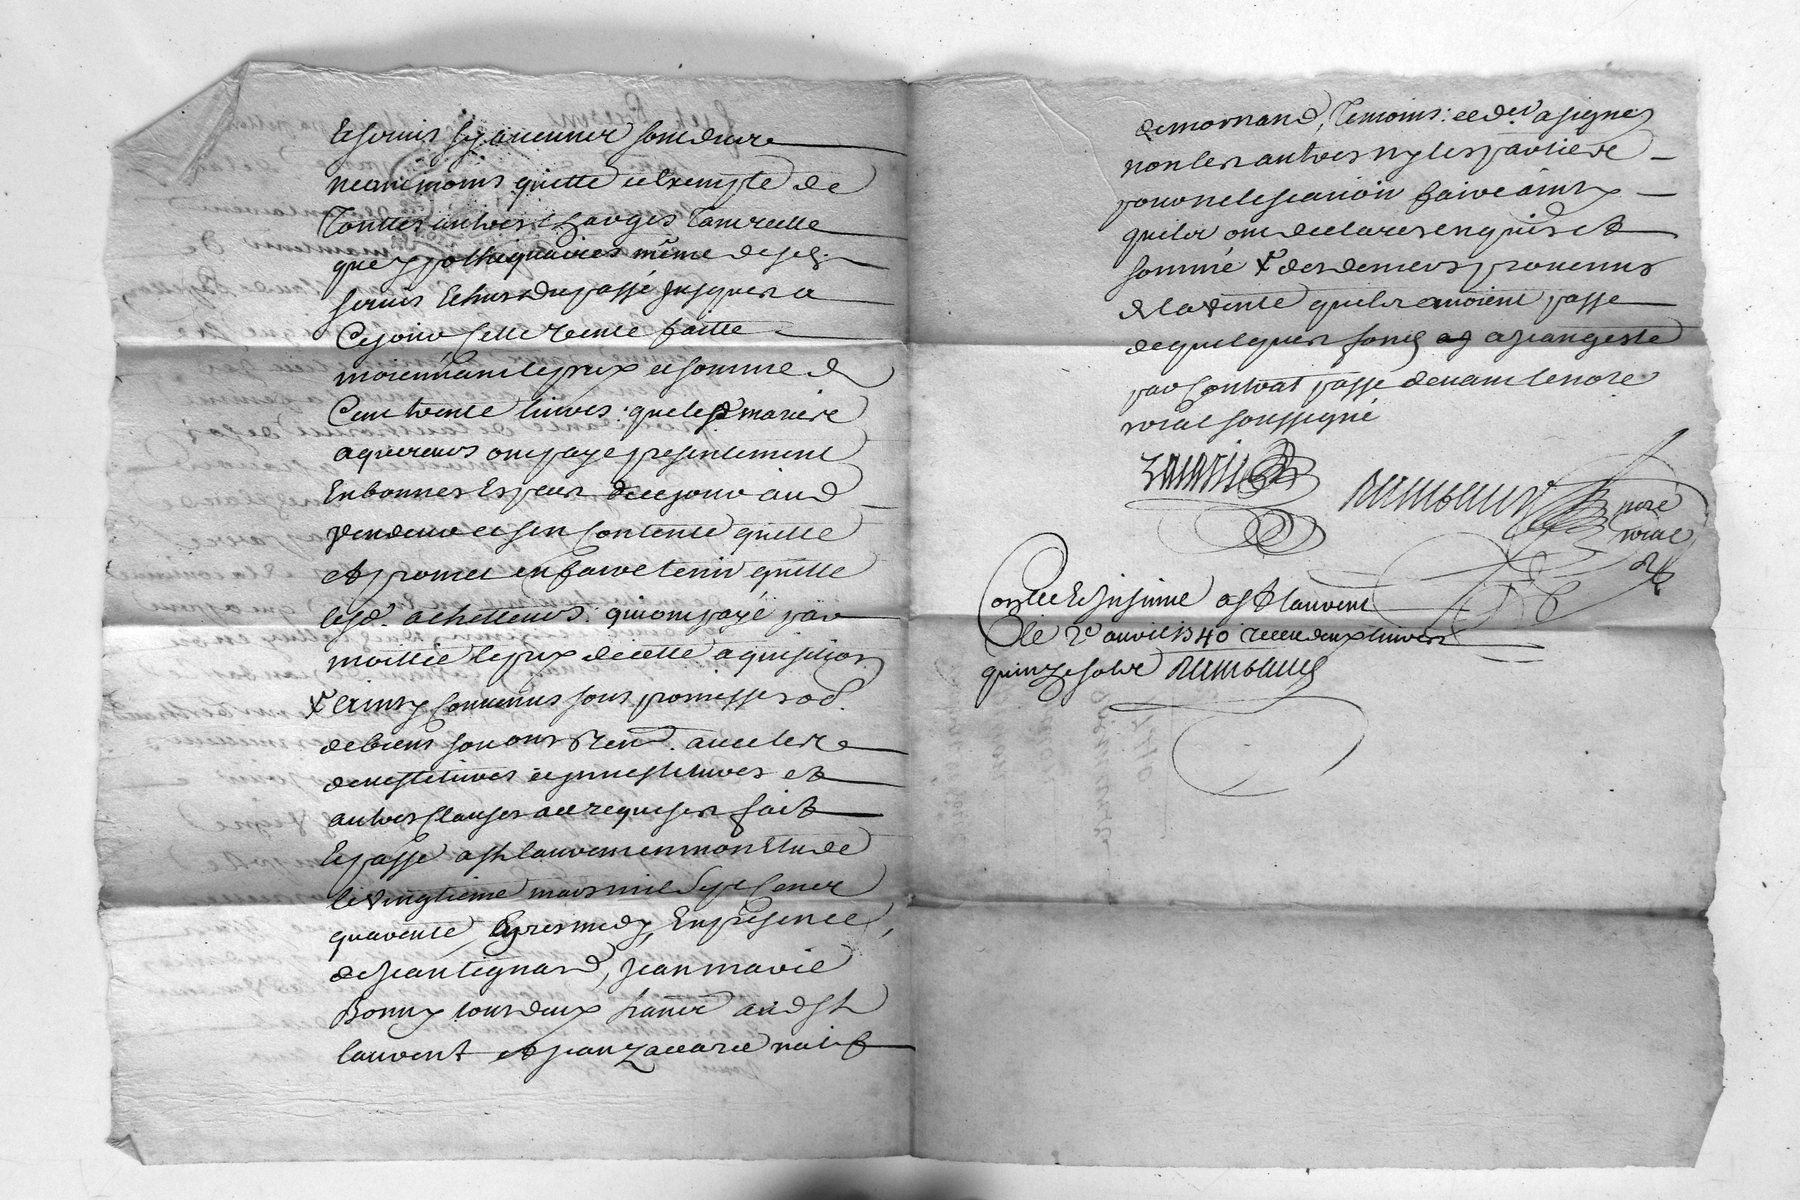 neanmoins quitte et exempte de
touttes autres charges tant reelle
que ypothequaires même desd.
servis echus du passé jusques a
ce jour cette vente faitte
moiennant le prix et somme de
cent trente livres: que lesd mariés
aquereurs ont payé presentement
en bonnes especes de ce jour aud
vendeur et s'en contente quitte
et promet en faire tenir quitte
lesd. achetteurs: qui ont payé par
moittié le prix de cette aquisition
de biens soumis renon. avec les
autres clauses a ce requises fait
et passé a st laurent en mon etude
le vingtieme mars mil sept cents
quarente apres midy, en presence,
de jean tignard, jean marie
Bonny tous deux aud st
laurent et jean zacarie natif
de mornand, temoins: ce dr. a signé
non les autres ny les parties
pour ne le scavoir faire ainsy
quils ont declarés enquis et
sommé X des deniers provenus
de la vente quils avoient passé
de quelques fond a jean geste
par contrat passé devant le nore
roial soussigné
zacarie
nore
roial
Conllé et insinué a st laurent
le 2e avril 1740 receu deux livres
quinze sols